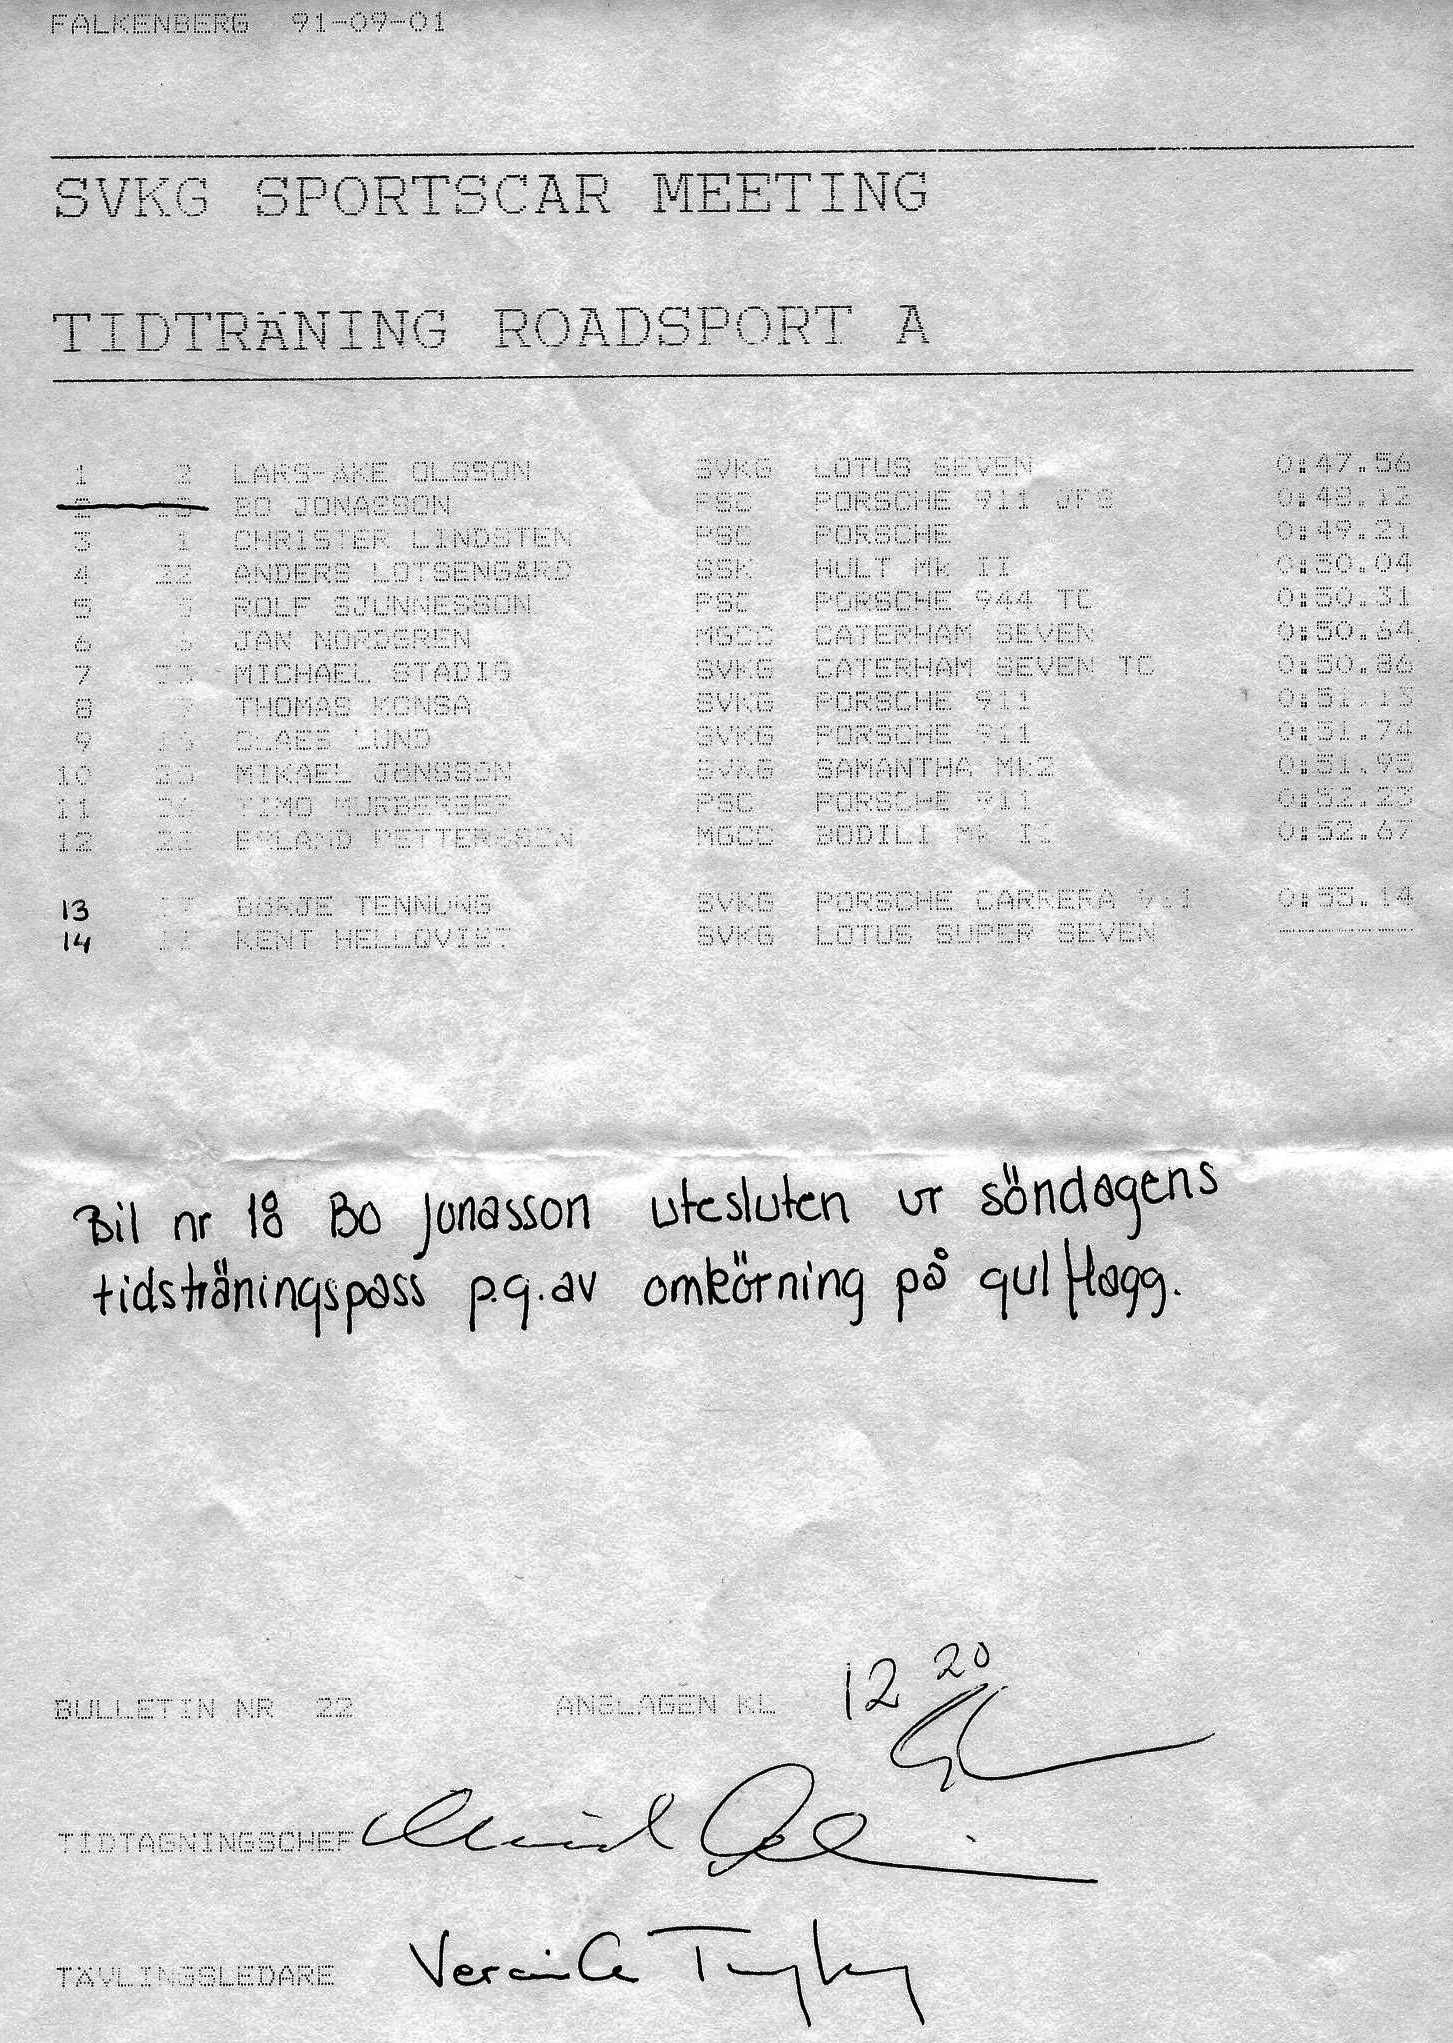 FALKENBERG 91-09-01
SVKG SPORTSCAR MEETING
TIDTRÄNING ROADSPORT A
1 2 LARS-ÅKE OLSSON SVKG LOTUS SEVEN 0:47.56
2 18 BO JONASSON PSC PORSCHE 911 JFS 0:48.12
3 1 CHRISTER LINDSTEN PSC PORSCHE 0:49.21
4 ANDERS LOTSENGÅRD SSK HULT Mk II 0:50.04
5 ROLF SJUNNESSON PSC PORSCHE 944 TC 0:50.31
6 JAN NORDGREN MGCC CATERHAM SEVEN 0:50.64
7 MICHAEL STADIG SVKG CATERHAM SEVEN TC 0:50.86
8 THOMAS KONSA SVKG PORSCHE 911 0:51.13
9 CLAES LUND SVKG PORSCHE 911 0:51.74
10 MIKAEL JÖNSSON SVKG SAMANTHA Mk2 0:51.95
11 TIMO PSC PORSCHE 911 0:52.23
12 ERLAND PETTERSSON MGCC BODILI Mk 0:52.67
13 BÖRJE TENNUNG SVKG PORSCHE CARRERA 911 0:55.14
14 KENT HELLQVIST SVKG LOTUS SUPER SEVEN --------
Bil nr 18 Bo Jonasson utesluten ur söndagens
tidsträningspass p.g.av omkörning på gul flagg.
BULLETIN NR 22 ANSLAGEN KL 12 20
TIDTAGNINGSCHEF
TÄVLINGSLEDARE